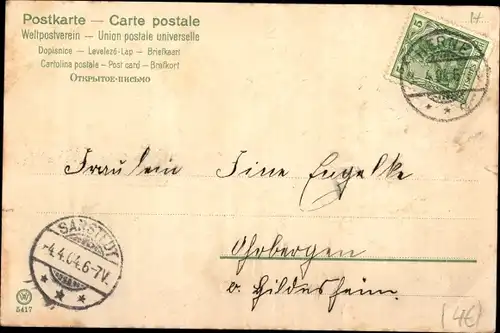 Postkarte — Carte postale
Weltpostverein — Union postale universelle
Dopisnice — Levelező-Lap — Briefkaart
Cartolina postale — Post card — Brefkort
Открытое-письмо
14
5
HERNE
4.04.6
Fräulein Tine Engelke
SARSTEDT
-4.4.04.6-7V.
Ohrbergen
b. Hildesheim
5417
(4€)